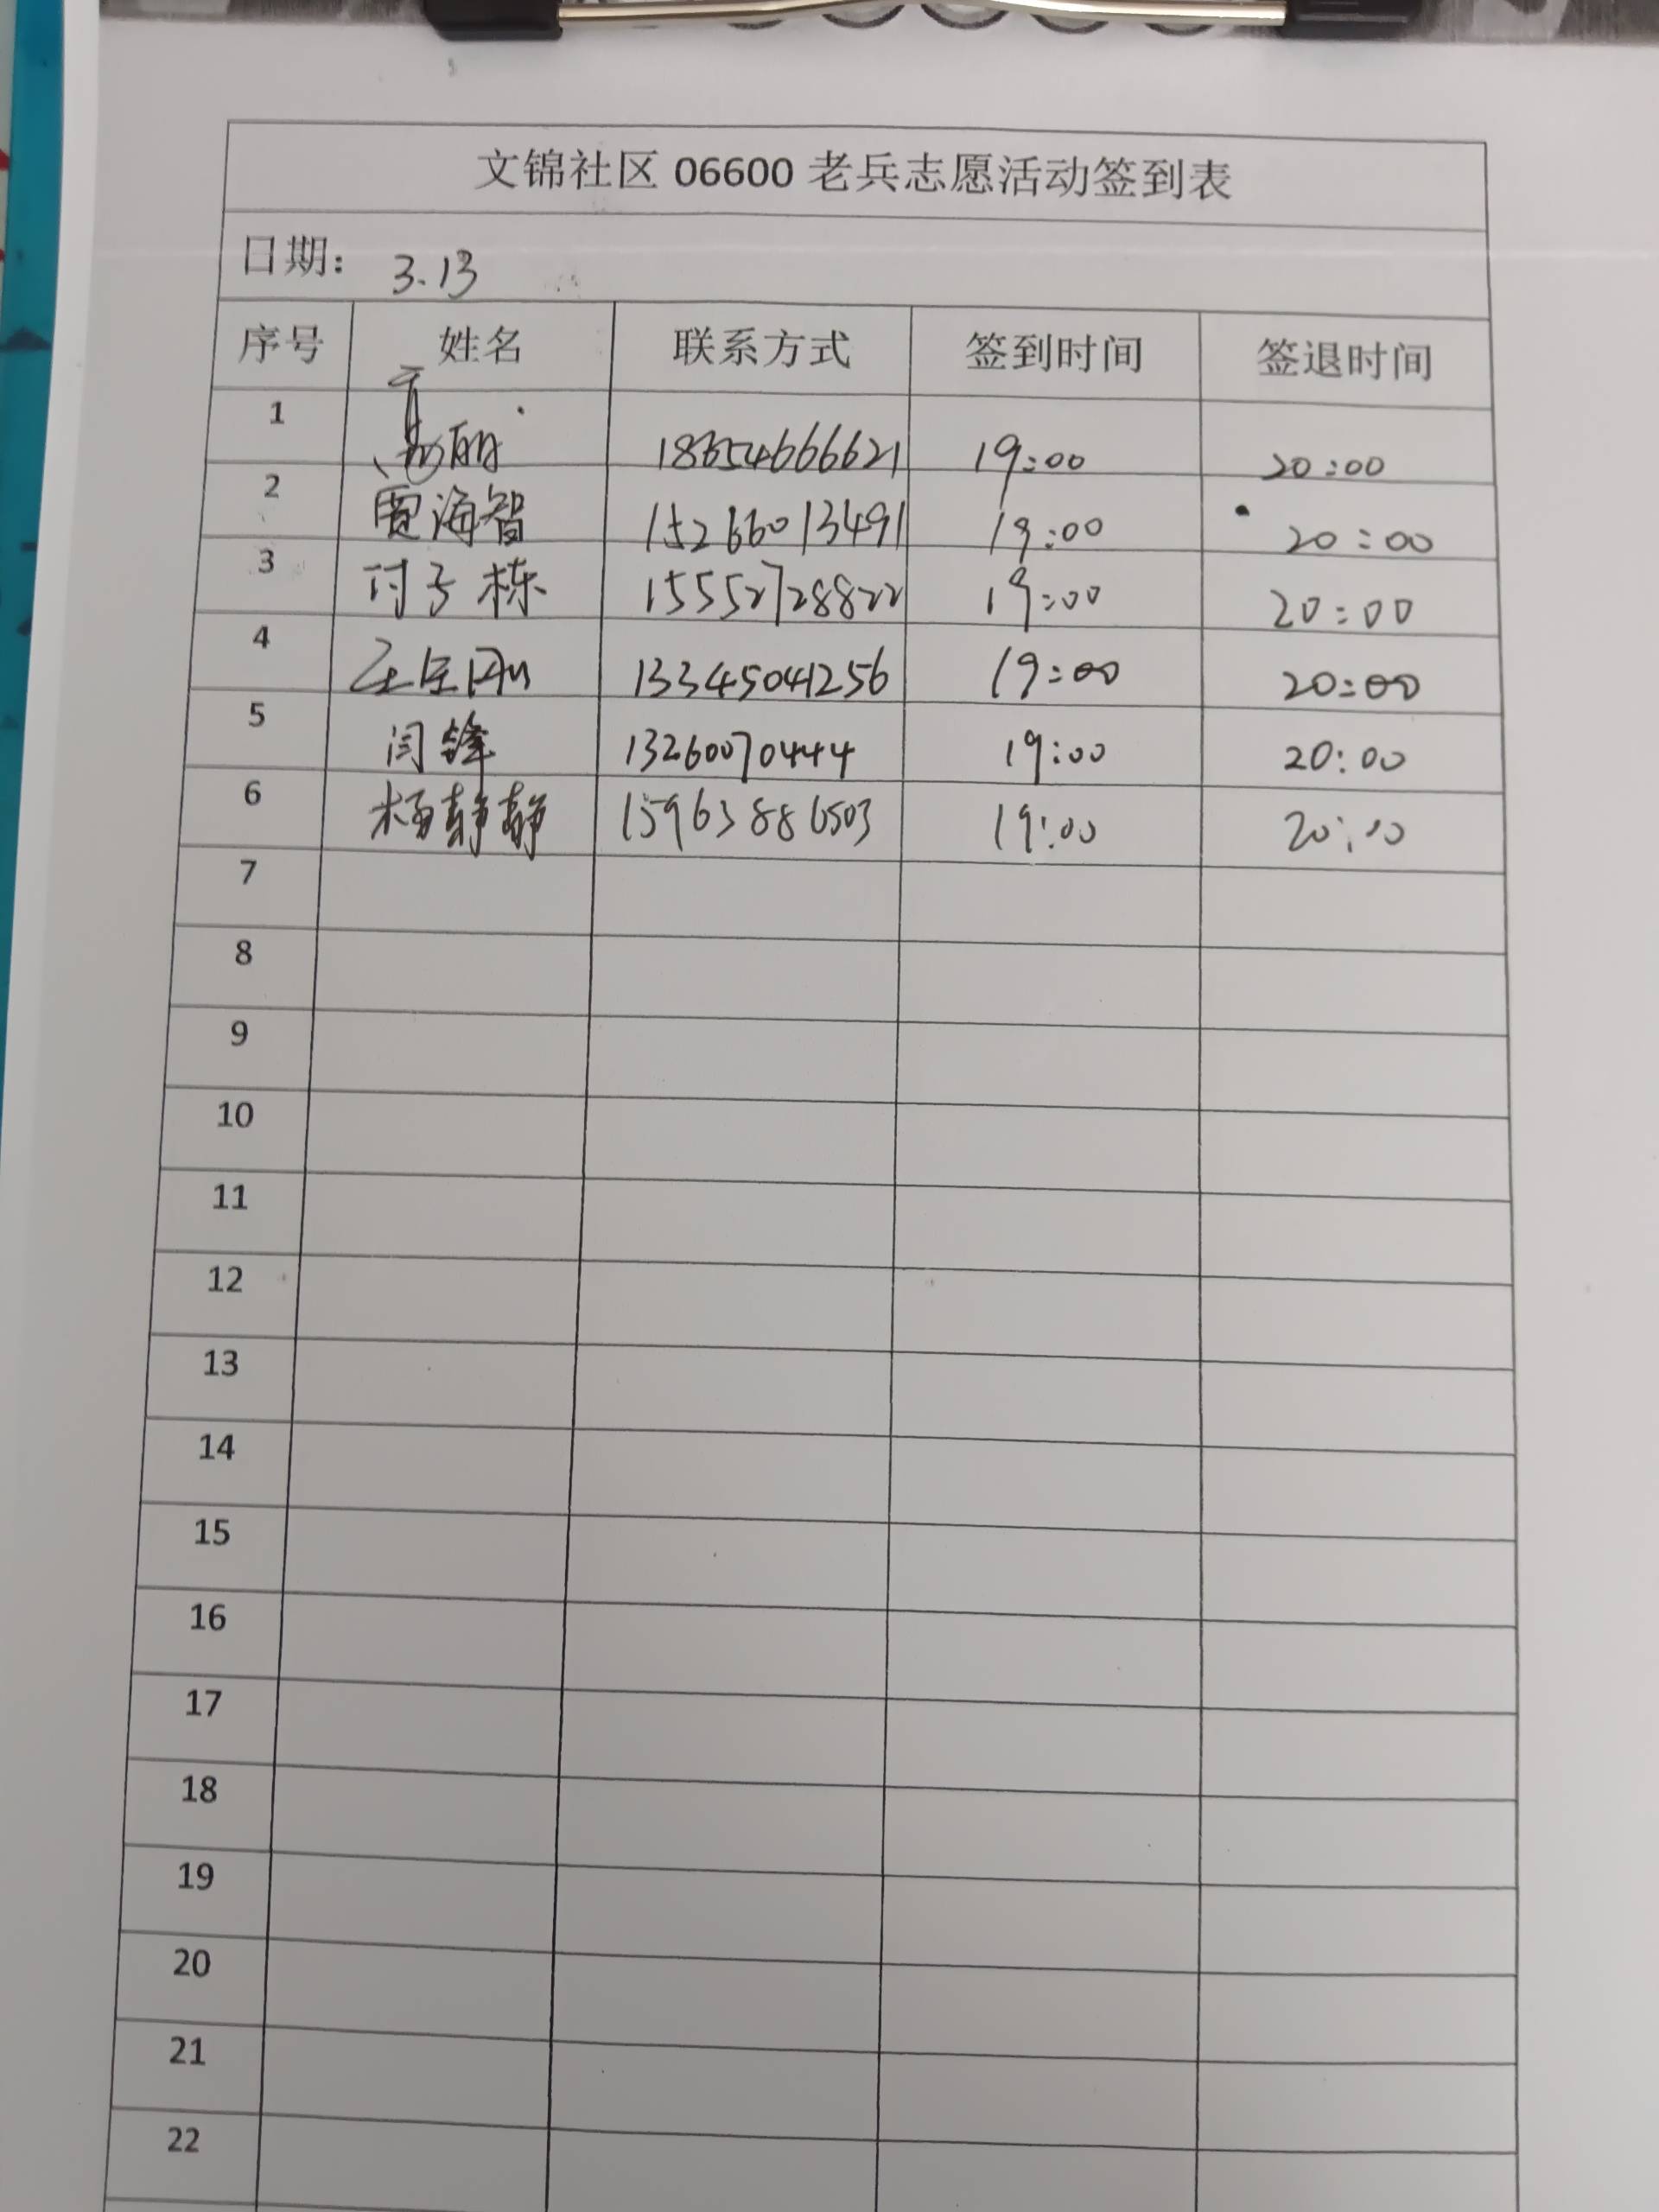 文锦社区 06600 老兵志愿活动签到表
日期： 3.13
序号 姓名 联系方式 签到时间 签退时间
1 18654666621 19:00 20:00
2 贾海智 15266013491 19:00 20:00
3 付子栋 15552728822 19:00 20:00
4 13345041256 19:00 20:00
5 闫锋 13260070444 19:00 20:00
6 杨静静 15963886503 19:00 20:00
7
8
9
10
11
12
13
14
15
16
17
18
19
20
21
22